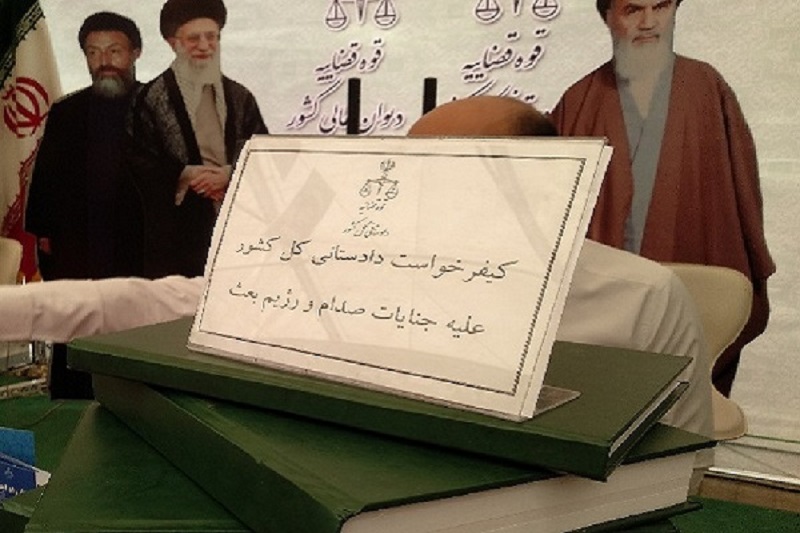 قوه قضاییه
دیوان عالی کشور
قوه قضاییه
قوه قضاییه
دادستانی کل کشور
کیفرخواست دادستانی کل کشور
علیه جنایات صدام و رژیم بعث